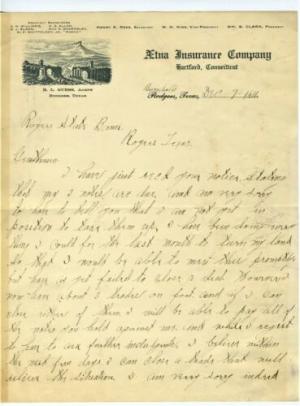 HENRY E. REES, SECRETARY
W. H. KING, VICE-PRESIDENT
WM. B. CLARK, PRESIDENT
Ætna Insurance Company
Hartford, Connecticut
AGENT
TEXAS
Texas, Dec 7
Rogers State Bank
Rogers Texas
Gentlemen
I have just recd your notice stating
that my notes are due and am very sorry
to have to tell you that I am not yet in
position to take them up, I have been doing every
thing I could for the last month to turn my land
so that I would be able to meet these promptly
but have as yet failed to close a deal. However
now have about 3 trades on foot and if I can
close either of them I will be able to pay all of
the notes you hold against me. and while I regret
to have to ask further indulgence, I believe within
the next few days I can close a trade that will
relieve the situation. I am very sorry indeed